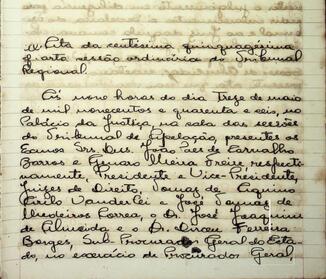 Ata da centésima quinquagésima
quarta sessão ordinária do Tribunal
Regional.
Às nove horas do dia treze de maio
de mil novecentos e quarenta e seis, no
Palácio da Justiça, na sala das sessões
do Tribunal de Apelação, presentes os
Exmos. Srs. Drs. João Paes de Carvalho
Barros e Genaro Meira Freire respecti-
vamente, Presidente e Vice-Presidente,
Juizes de Direito, Tomaz de Aquino
Cirilo Vanderlei e José Tomaz de
Medeiros Correa, o Dr. José Joaquim
de Almeida e o Dr. Dirceu Ferreira
Borges, Sub-Procurador Geral do Esta-
do, no exercício de Procurador Geral,